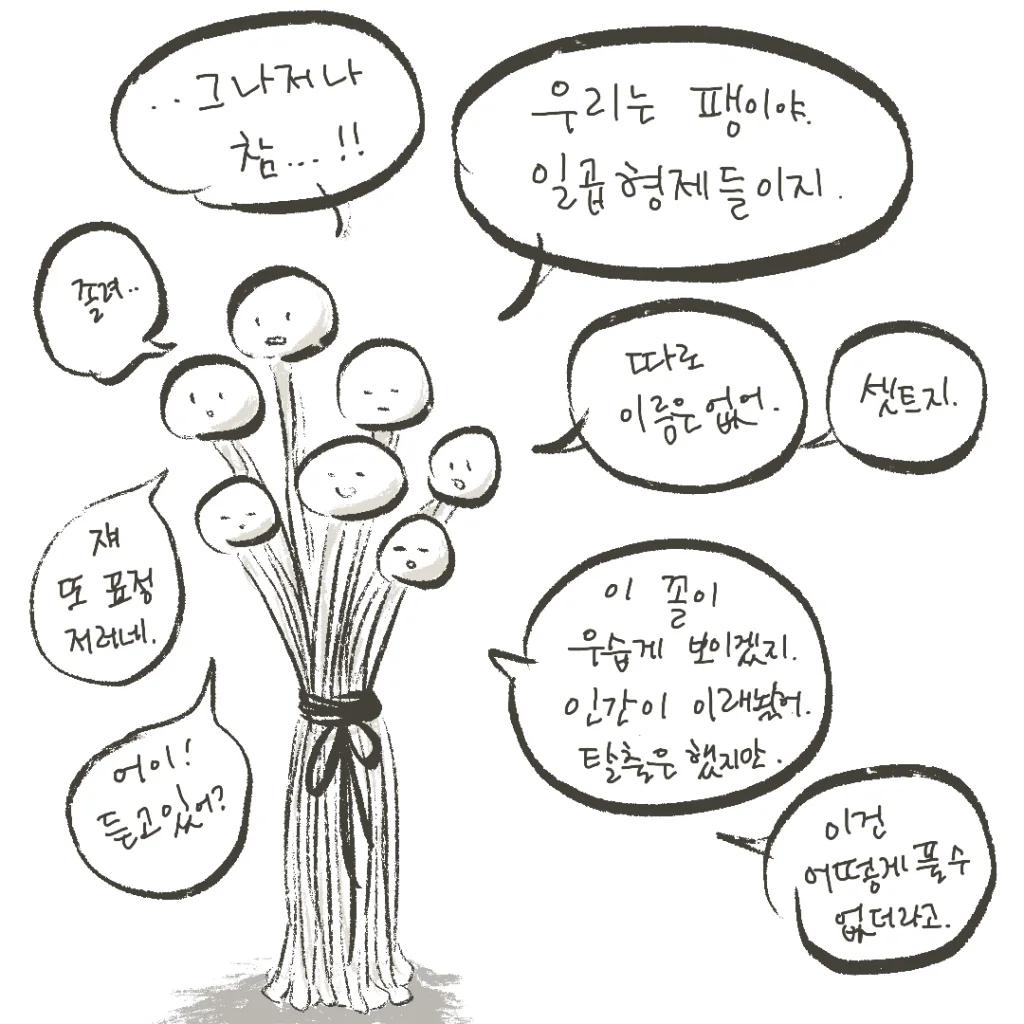 ..그나저나
참...!!
우리는 팽이야.
일곱형제들이지.
졸려..
따로
이름은없어.
셋트지.
쟤
또 표정
저러네.
이 꼴이
우습게 보이겠지.
인간이 이래놨어.
탈출은했지만.
어이!
듣고있어?
이건
어떻게풀수
없더라고.